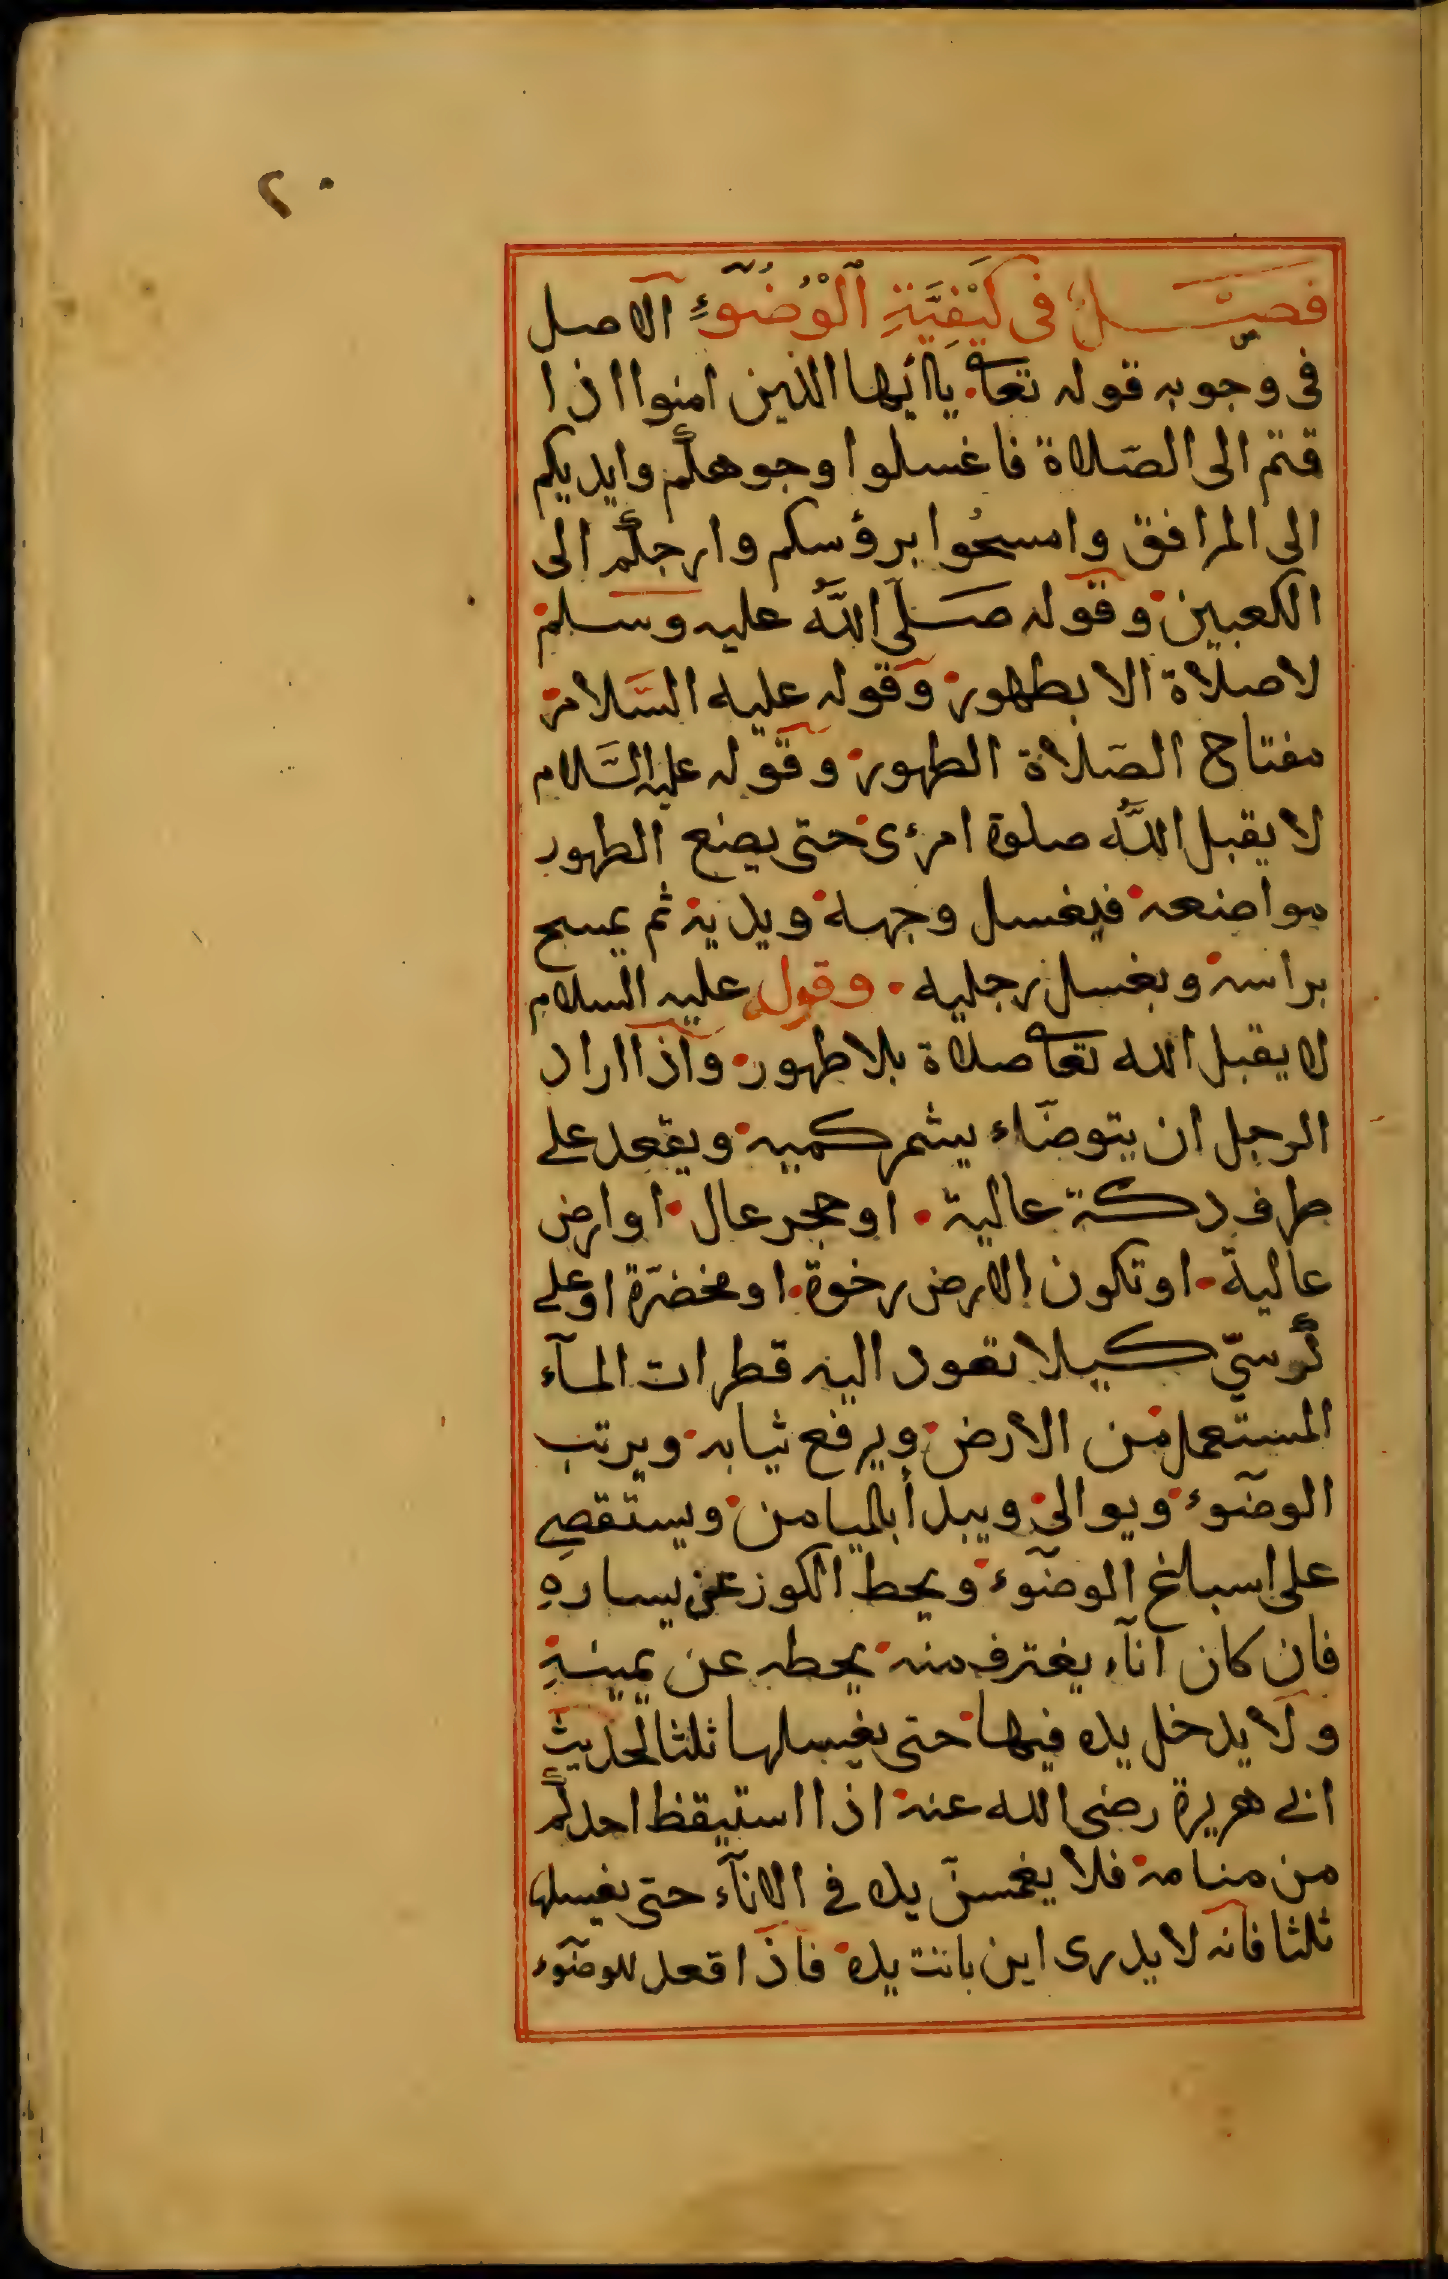 ٢٠
فصل في كَيْفِيَّةِ الْوُضُوءِ الاصل
فى وجوبه قوله تعا يا ايها الذين امنوا اذا
قمتم الى الصّلاة فاغسلوا وجوهكم وايديكم
الى المرافق وامسحُوا برؤسكم وارجلكم الى
الكعبين وقوله صَلَّى اللَّه عليه وسلم
لاصلاة الا بطهور وقوله عليه السَّلام
مفتاح الصّلاة الطهور وقوله عليه السَّلام
لا يقبل اللَّه صلوة امرءى حتى يضع الطهور
مواضعه فيغسل وجهه ويديه ثم يمسح
براسه ويغسل رجليه وقوله عليه السلام
لا يقبل الله تعا صلاة بلا طهور واذا اراد
الرجل ان يتوضاء يشمر كميه ويقعد على
طرف دكة عالية او حجر عال او ارض
عالية او تكون الارض رخوة او مخضرّة او على
كرسيّ كيلا تعود اليه قطرات المآء
المستعمل من الارض ويرفع ثيابه ويرتب
الوضوء ويوالى ويبدأ بالميامن ويستقصى
على اسباغ الوضوء ويحط الكوز عن يساره
فان كان انآء يغترف منه يحطه عن يمينه
ولا يدخل يده فيها حتى يغسلها ثلثا لحديث
ابى هريرة رضى الله عنه اذا استيقظ احدكم
من منامه فلا يغمسنّ يده فى الانآء حتى يغسلها
ثلثا فانه لا يدرى اين باتت يده فاذا قعد للوضوء